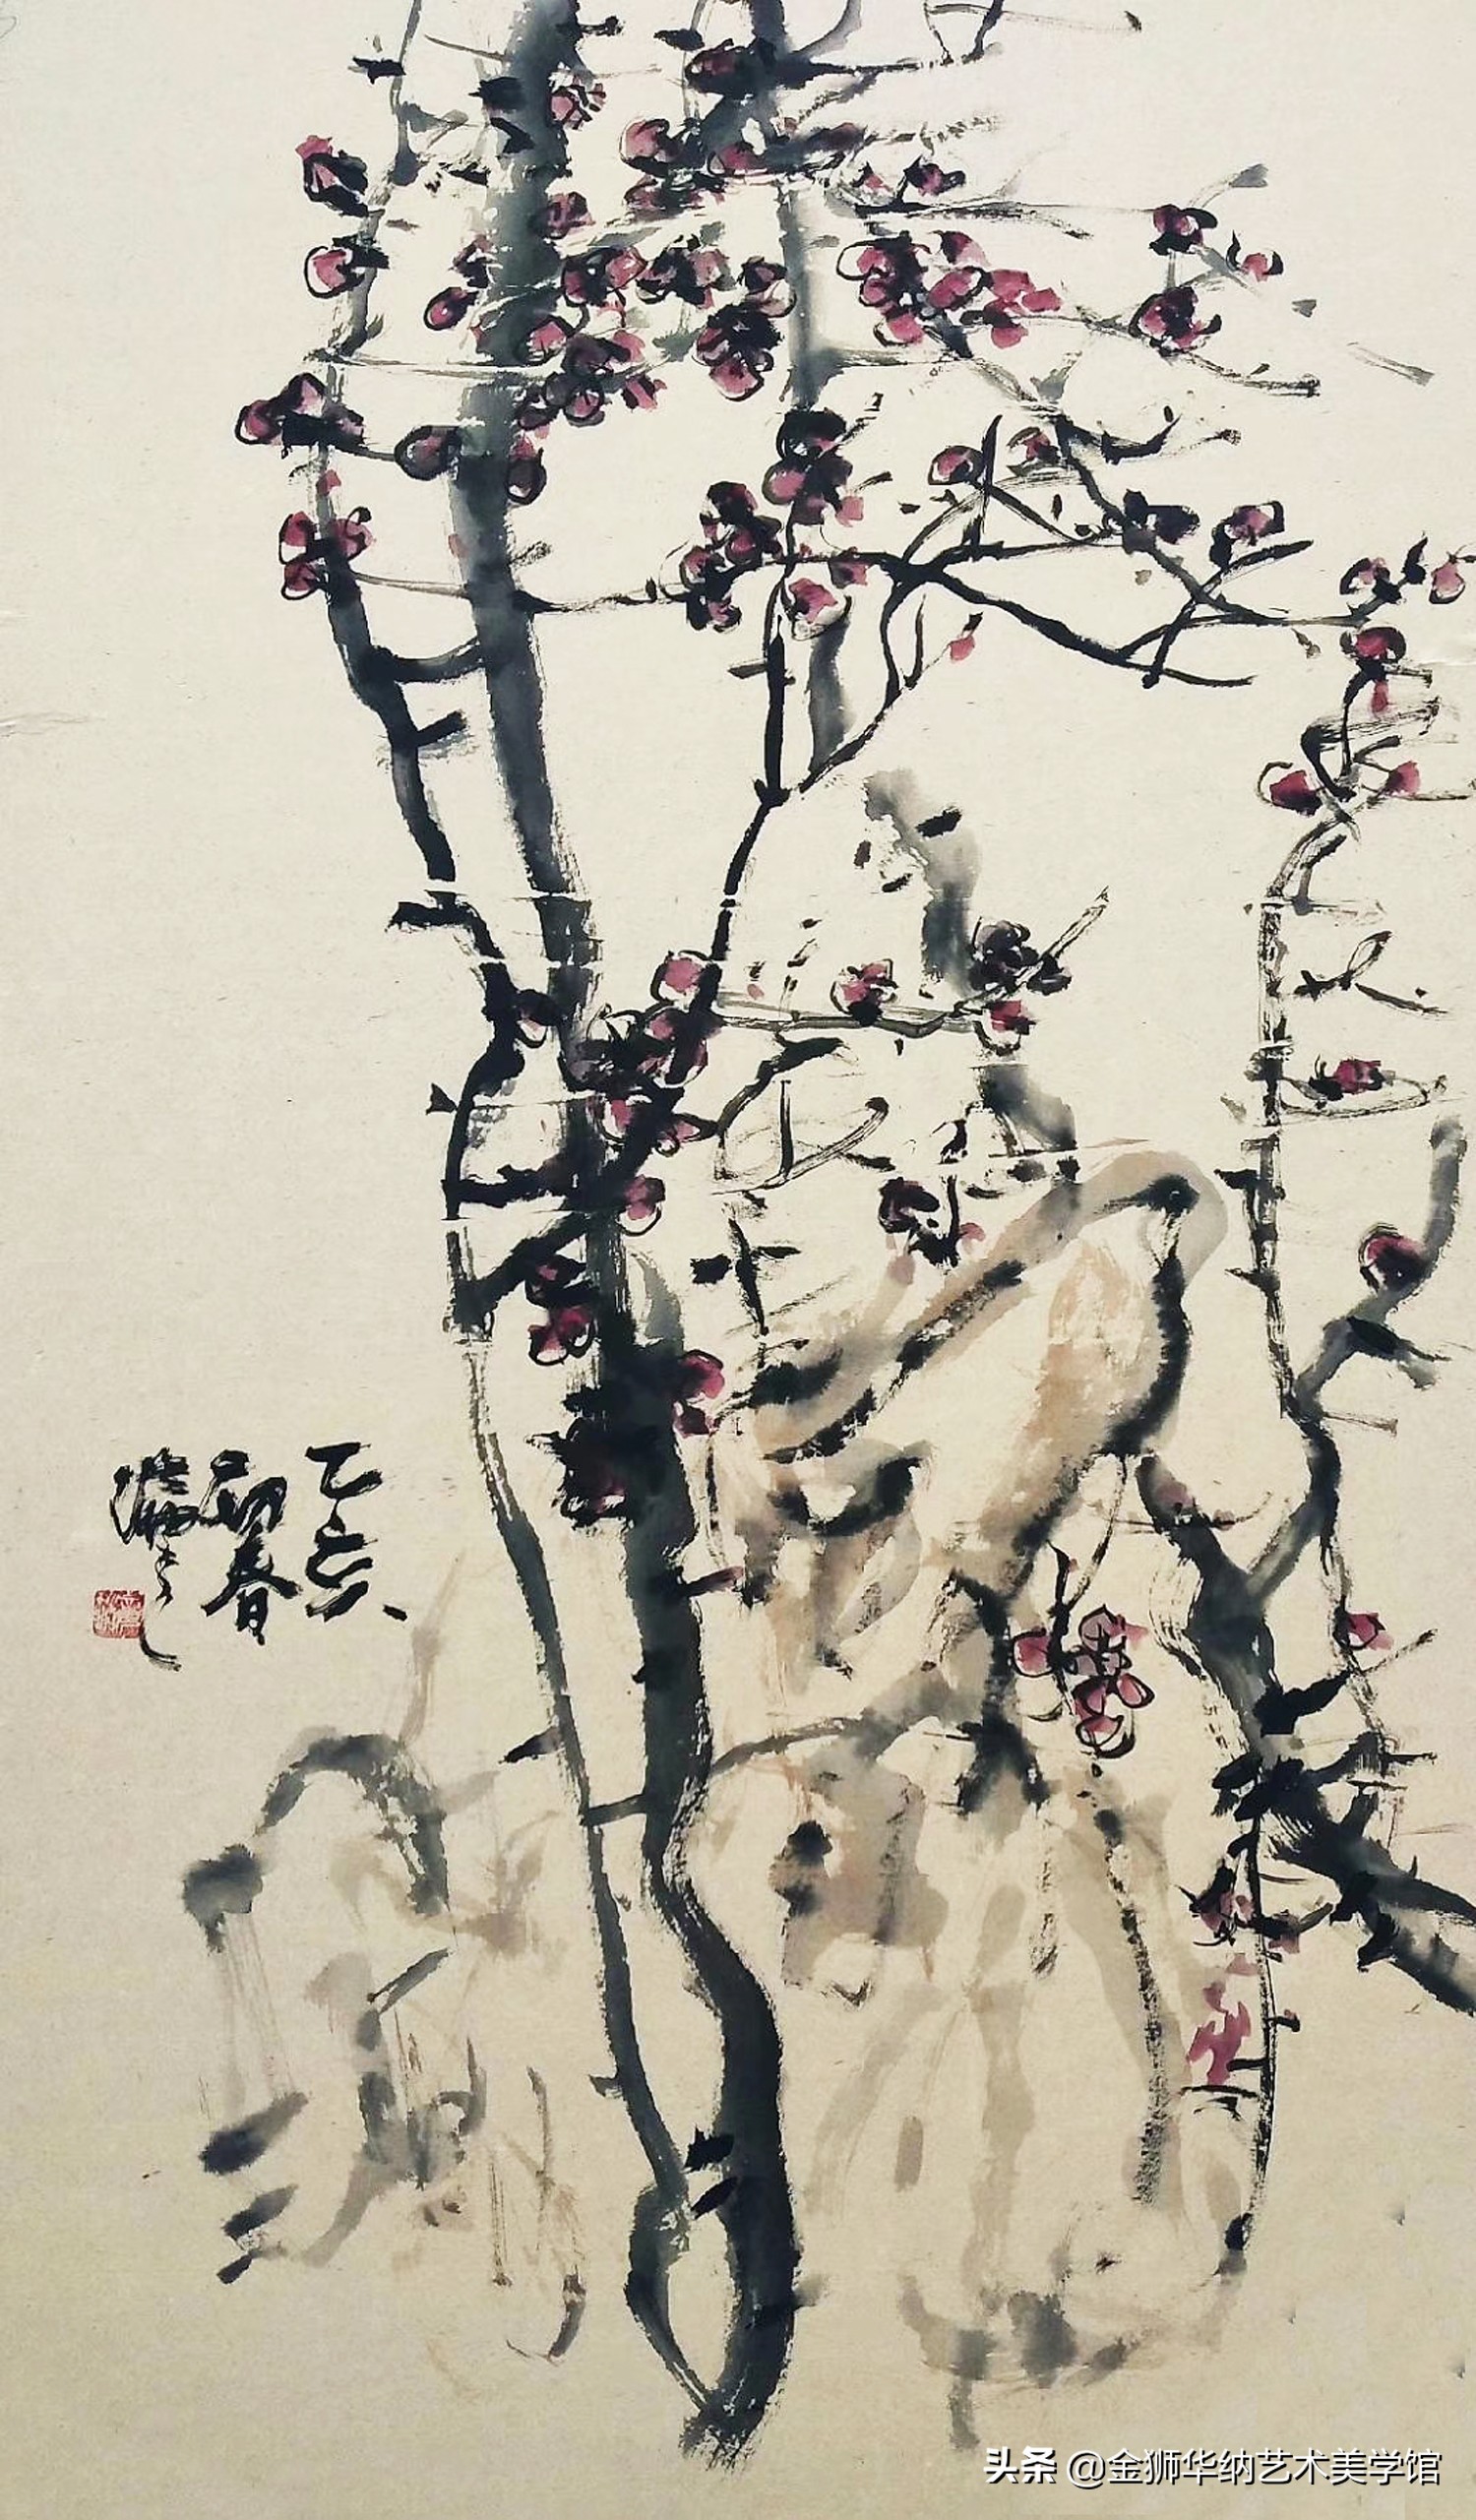 乙亥
初春
头条 @金狮华纳艺术美学馆